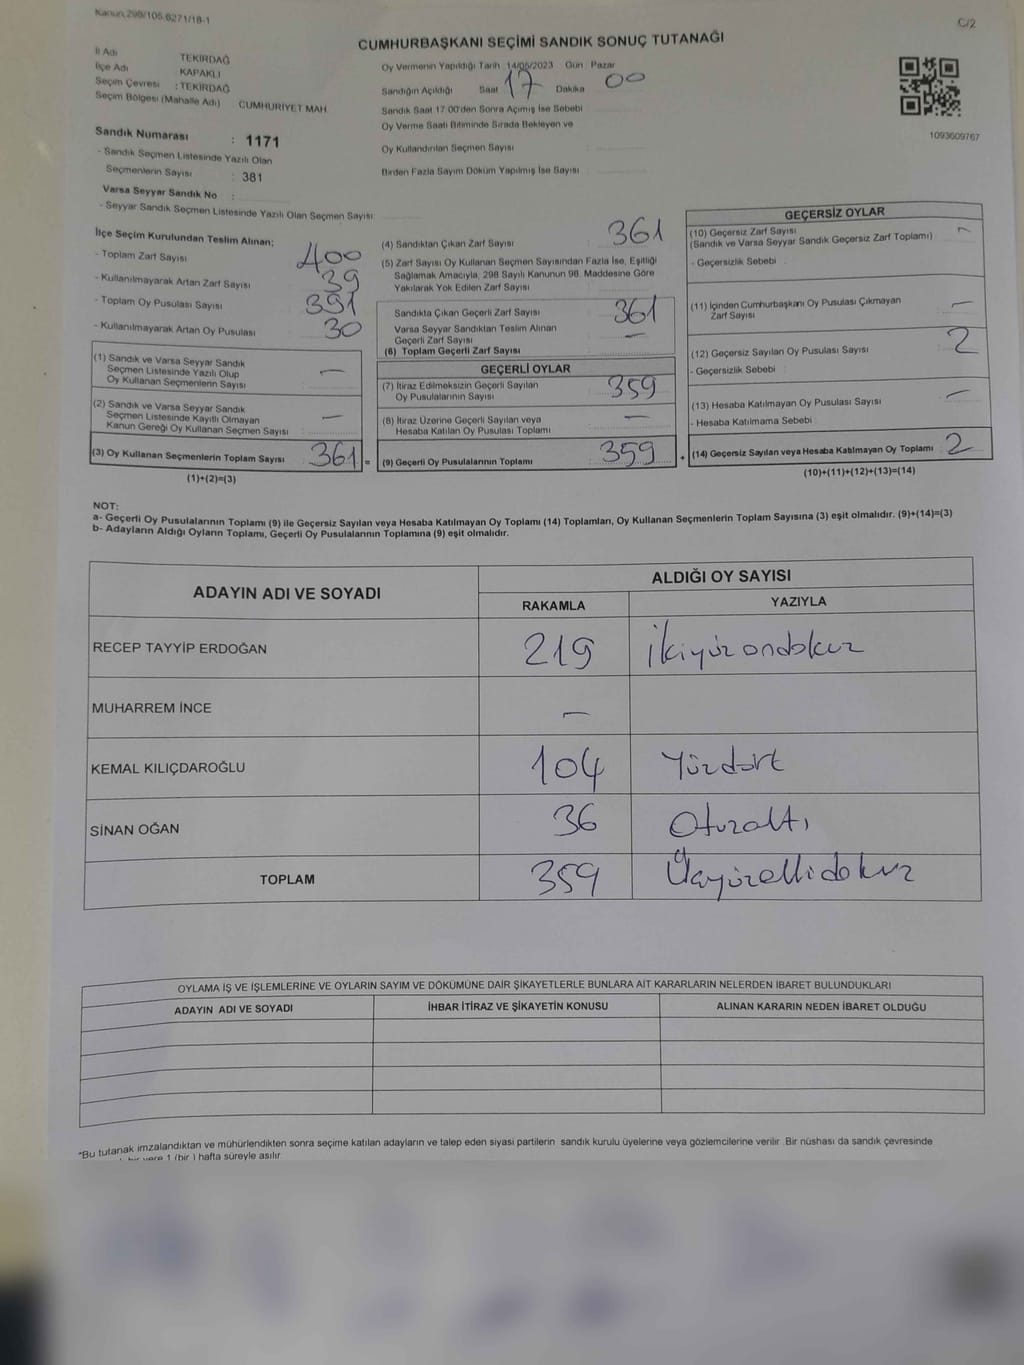 Kanun.298/105.6271/18-1
C/2
CUMHURBAŞKANI SEÇİMİ SANDIK SONUÇ TUTANAĞI
İl Adı TEKİRDAĞ
İlçe Adı KAPAKLI
Seçim Çevresi : TEKİRDAĞ
Seçim Bölgesi (Mahalle Adı) CUMHURİYET MAH.
Sandık Numarası : 1171
- Sandık Seçmen Listesinde Yazılı Olan
Seçmenlerin Sayısı : 381
Varsa Seyyar Sandık No :
- Seyyar Sandık Seçmen Listesinde Yazılı Olan Seçmen Sayısı:
Oy Vermenin Yapıldığı Tarih 14/05/2023 Gün Pazar
Sandığın Açıldığı Saat 17 Dakika 00
Sandık Saat 17.00'den Sonra Açılmış İse Sebebi
Oy Verme Saati Bitiminde Sırada Bekleyen ve
Oy Kullandırılan Seçmen Sayısı :
Birden Fazla Sayım Döküm Yapılmış İse Sayısı :
1093609767
İlçe Seçim Kurulundan Teslim Alınan;
- Toplam Zarf Sayısı : 400
- Kullanılmayarak Artan Zarf Sayısı : 39
- Toplam Oy Pusulası Sayısı : 391
- Kullanılmayarak Artan Oy Pusulası : 30
(1) Sandık ve Varsa Seyyar Sandık
Seçmen Listesinde Yazılı Olup
Oy Kullanan Seçmenlerin Sayısı : —
(2) Sandık ve Varsa Seyyar Sandık
Seçmen Listesinde Kayıtlı Olmayan
Kanun Gereği Oy Kullanan Seçmen Sayısı : —
(3) Oy Kullanan Seçmenlerin Toplam Sayısı : 361 =
(1)+(2)=(3)
(4) Sandıktan Çıkan Zarf Sayısı : 361
(5) Zarf Sayısı Oy Kullanan Seçmen Sayısından Fazla İse, Eşitliği
Sağlamak Amacıyla, 298 Sayılı Kanunun 98. Maddesine Göre
Yakılarak Yok Edilen Zarf Sayısı :
Sandıkta Çıkan Geçerli Zarf Sayısı : 361
Varsa Seyyar Sandıktan Teslim Alınan
Geçerli Zarf Sayısı —
(6) Toplam Geçerli Zarf Sayısı
GEÇERLİ OYLAR
(7) İtiraz Edilmeksizin Geçerli Sayılan
Oy Pusulalarının Sayısı : 359
(8) İtiraz Üzerine Geçerli Sayılan veya
Hesaba Katılan Oy Pusulası Toplamı : —
(9) Geçerli Oy Pusulalarının Toplamı : 359 +
GEÇERSİZ OYLAR
(10) Geçersiz Zarf Sayısı
(Sandık ve Varsa Seyyar Sandık Geçersiz Zarf Toplamı) : —
- Geçersizlik Sebebi :
(11) İçinden Cumhurbaşkanı Oy Pusulası Çıkmayan
Zarf Sayısı : —
(12) Geçersiz Sayılan Oy Pusulası Sayısı : 2
- Geçersizlik Sebebi :
(13) Hesaba Katılmayan Oy Pusulası Sayısı : —
- Hesaba Katılmama Sebebi :
(14) Geçersiz Sayılan veya Hesaba Katılmayan Oy Toplamı : 2
(10)+(11)+(12)+(13)=(14)
NOT:
a- Geçerli Oy Pusulalarının Toplamı (9) ile Geçersiz Sayılan veya Hesaba Katılmayan Oy Toplamı (14) Toplamları, Oy Kullanan Seçmenlerin Toplam Sayısına (3) eşit olmalıdır. (9)+(14)=(3)
b- Adayların Aldığı Oyların Toplamı, Geçerli Oy Pusulalarının Toplamına (9) eşit olmalıdır.
ADAYIN ADI VE SOYADI
ALDIĞI OY SAYISI
RAKAMLA YAZIYLA
RECEP TAYYİP ERDOĞAN 219 İkiyüzondokuz
MUHARREM İNCE —
KEMAL KILIÇDAROĞLU 104 Yüzdört
SİNAN OĞAN 36 Otuzaltı
TOPLAM 359 Üçyüzellidokuz
OYLAMA İŞ VE İŞLEMLERİNE VE OYLARIN SAYIM VE DÖKÜMÜNE DAİR ŞİKAYETLERLE BUNLARA AİT KARARLARIN NELERDEN İBARET BULUNDUKLARI
ADAYIN ADI VE SOYADI İHBAR İTİRAZ VE ŞİKAYETİN KONUSU ALINAN KARARIN NEDEN İBARET OLDUĞU
*Bu tutanak imzalandıktan ve mühürlendikten sonra seçime katılan adayların ve talep eden siyasi partilerin sandık kurulu üyelerine veya gözlemcilerine verilir. Bir nüshası da sandık çevresinde
bir yere 1 (bir ) hafta süreyle asılır